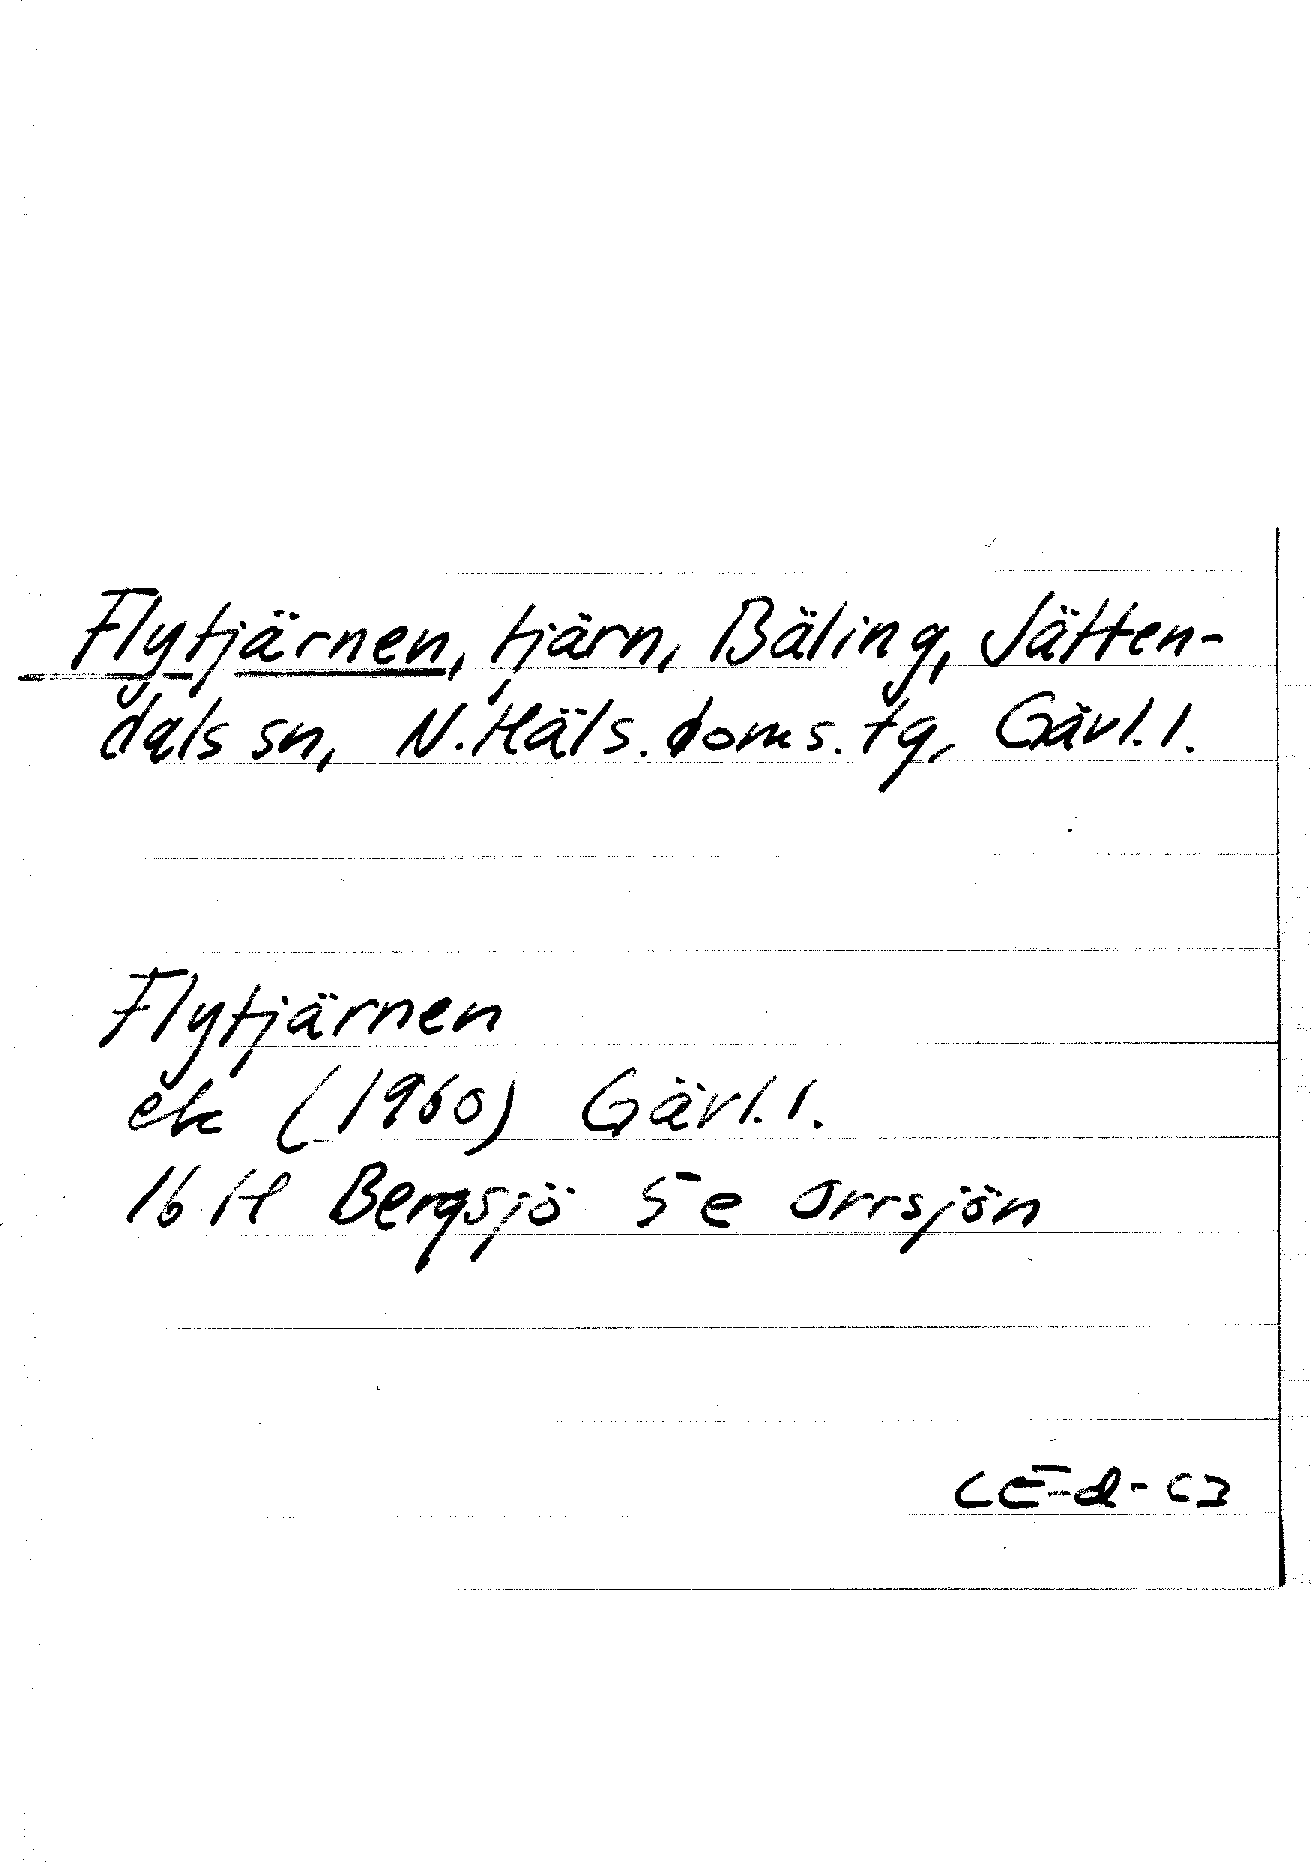 Flytjärnen, tjärn, Bäling, Jätten-
dals sn, N. Häls. doms. tg, Gävl. l.
Flytjärnen
ek (1960) Gävl. l.
16 H Bergsjö 5 e Orrsjön